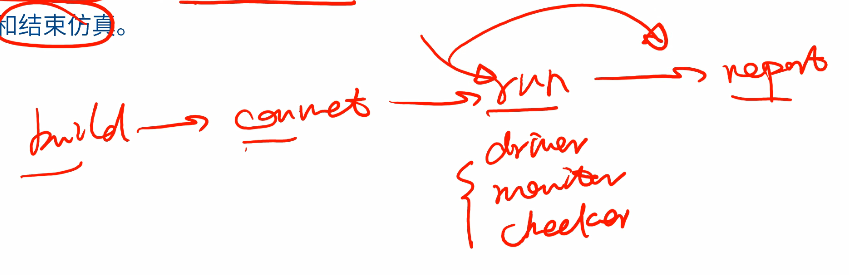 和结束仿真。
build → connet → run → report
driver
moniter
checker